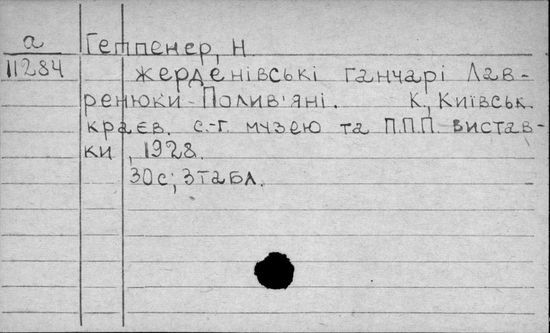 а Геппенер, Н.
11284 Жерденівські ганчарі Лав-
ренюки-Полив'яні. К, Київськ.
краєв. с.-г. музею та П.П.П. вистав-
ки, 1928.
30с; 3табл.